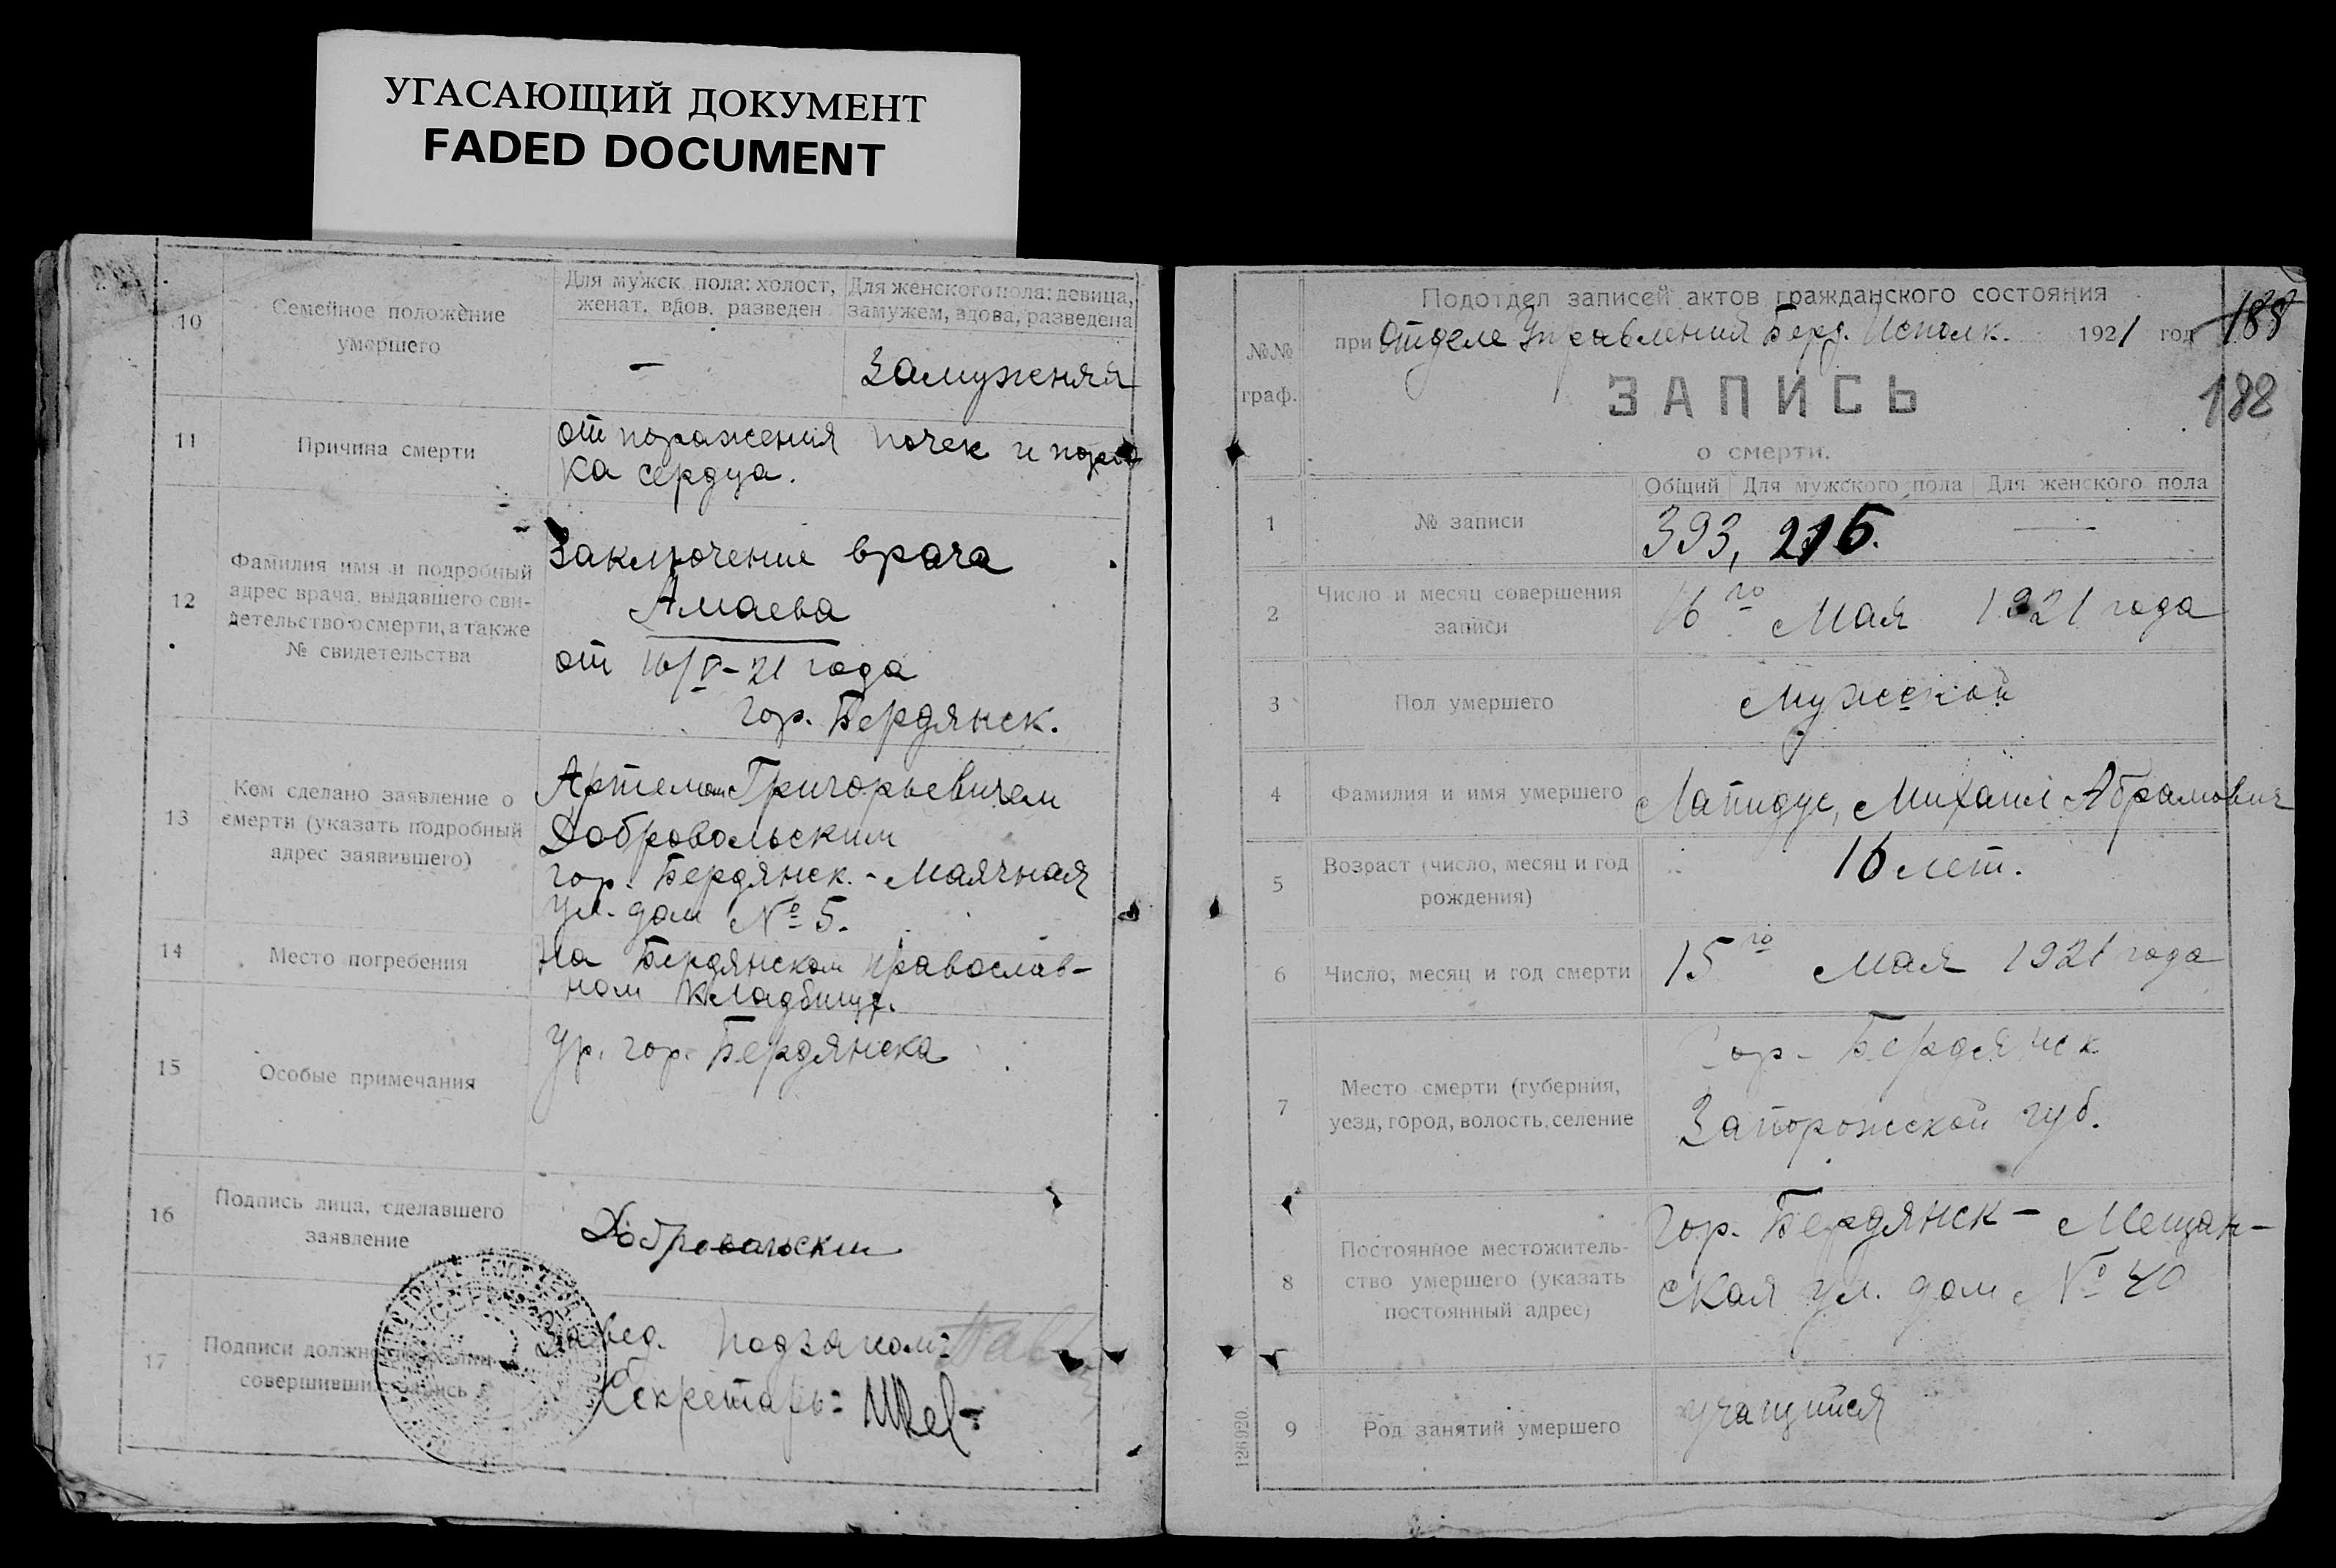 УГАСАЮЩИЙ ДОКУМЕНТ
FADED DOCUMENT
10
Семейное положение
умершего
Для мужск пола: холост,
женат, вдов, разведен
Для женского пола: девица,
замужем, вдова, разведена
—
Замужняя
11
Причина смерти
от поражения почек и
ка сердца.
12
Фамилия имя и подробный
адрес врача, выдавшего сви-
детельство о смерти, а также
№ свидетельства
Заключение врача
Амаева
от 16/V-21 года
гор. Бердянск.
13
Кем сделано заявление о
смерти (указать подробный
адрес заявившего)
Артемом Григорьевичем
Добровольским
гор. Бердянск. - Маячная
ул. дом № 5.
14
Место погребения
На Бердянском православ-
ном кладбище.
15
Особые примечания
Ур. гор. Бердянска
16
Подпись лица, сделавшего
заявление
Добровольский
17
Подписи
совершивших запись
Завед. Подзагсом:
Секретарь:
№№
граф.
Подотдел записей актов гражданского состояния
при Отделе Управления Берд. Исполк. 1921 год
188
188
ЗАПИСЬ
о смерти.
Общий
Для мужского пола
Для женского пола
1
№ записи
393, 215.
—
2
Число и месяц совершения
записи
16го Мая 1921 года
3
Пол умершего
Мужской
4
Фамилия и имя умершего
Лапидус, Михаил Абрамович
5
Возраст (число, месяц и год
рождения)
16 лет.
6
Число, месяц и год смерти
15го Мая 1921 года
7
Место смерти (губерния,
уезд, город, волость, селение
Гор. Бердянск
Запорожской губ.
8
Постоянное местожитель-
ство умершего (указать
постоянный адрес)
Гор. Бердянск - Мещан-
ская ул. дом № 40
9
Род занятий умершего
учащийся
126920